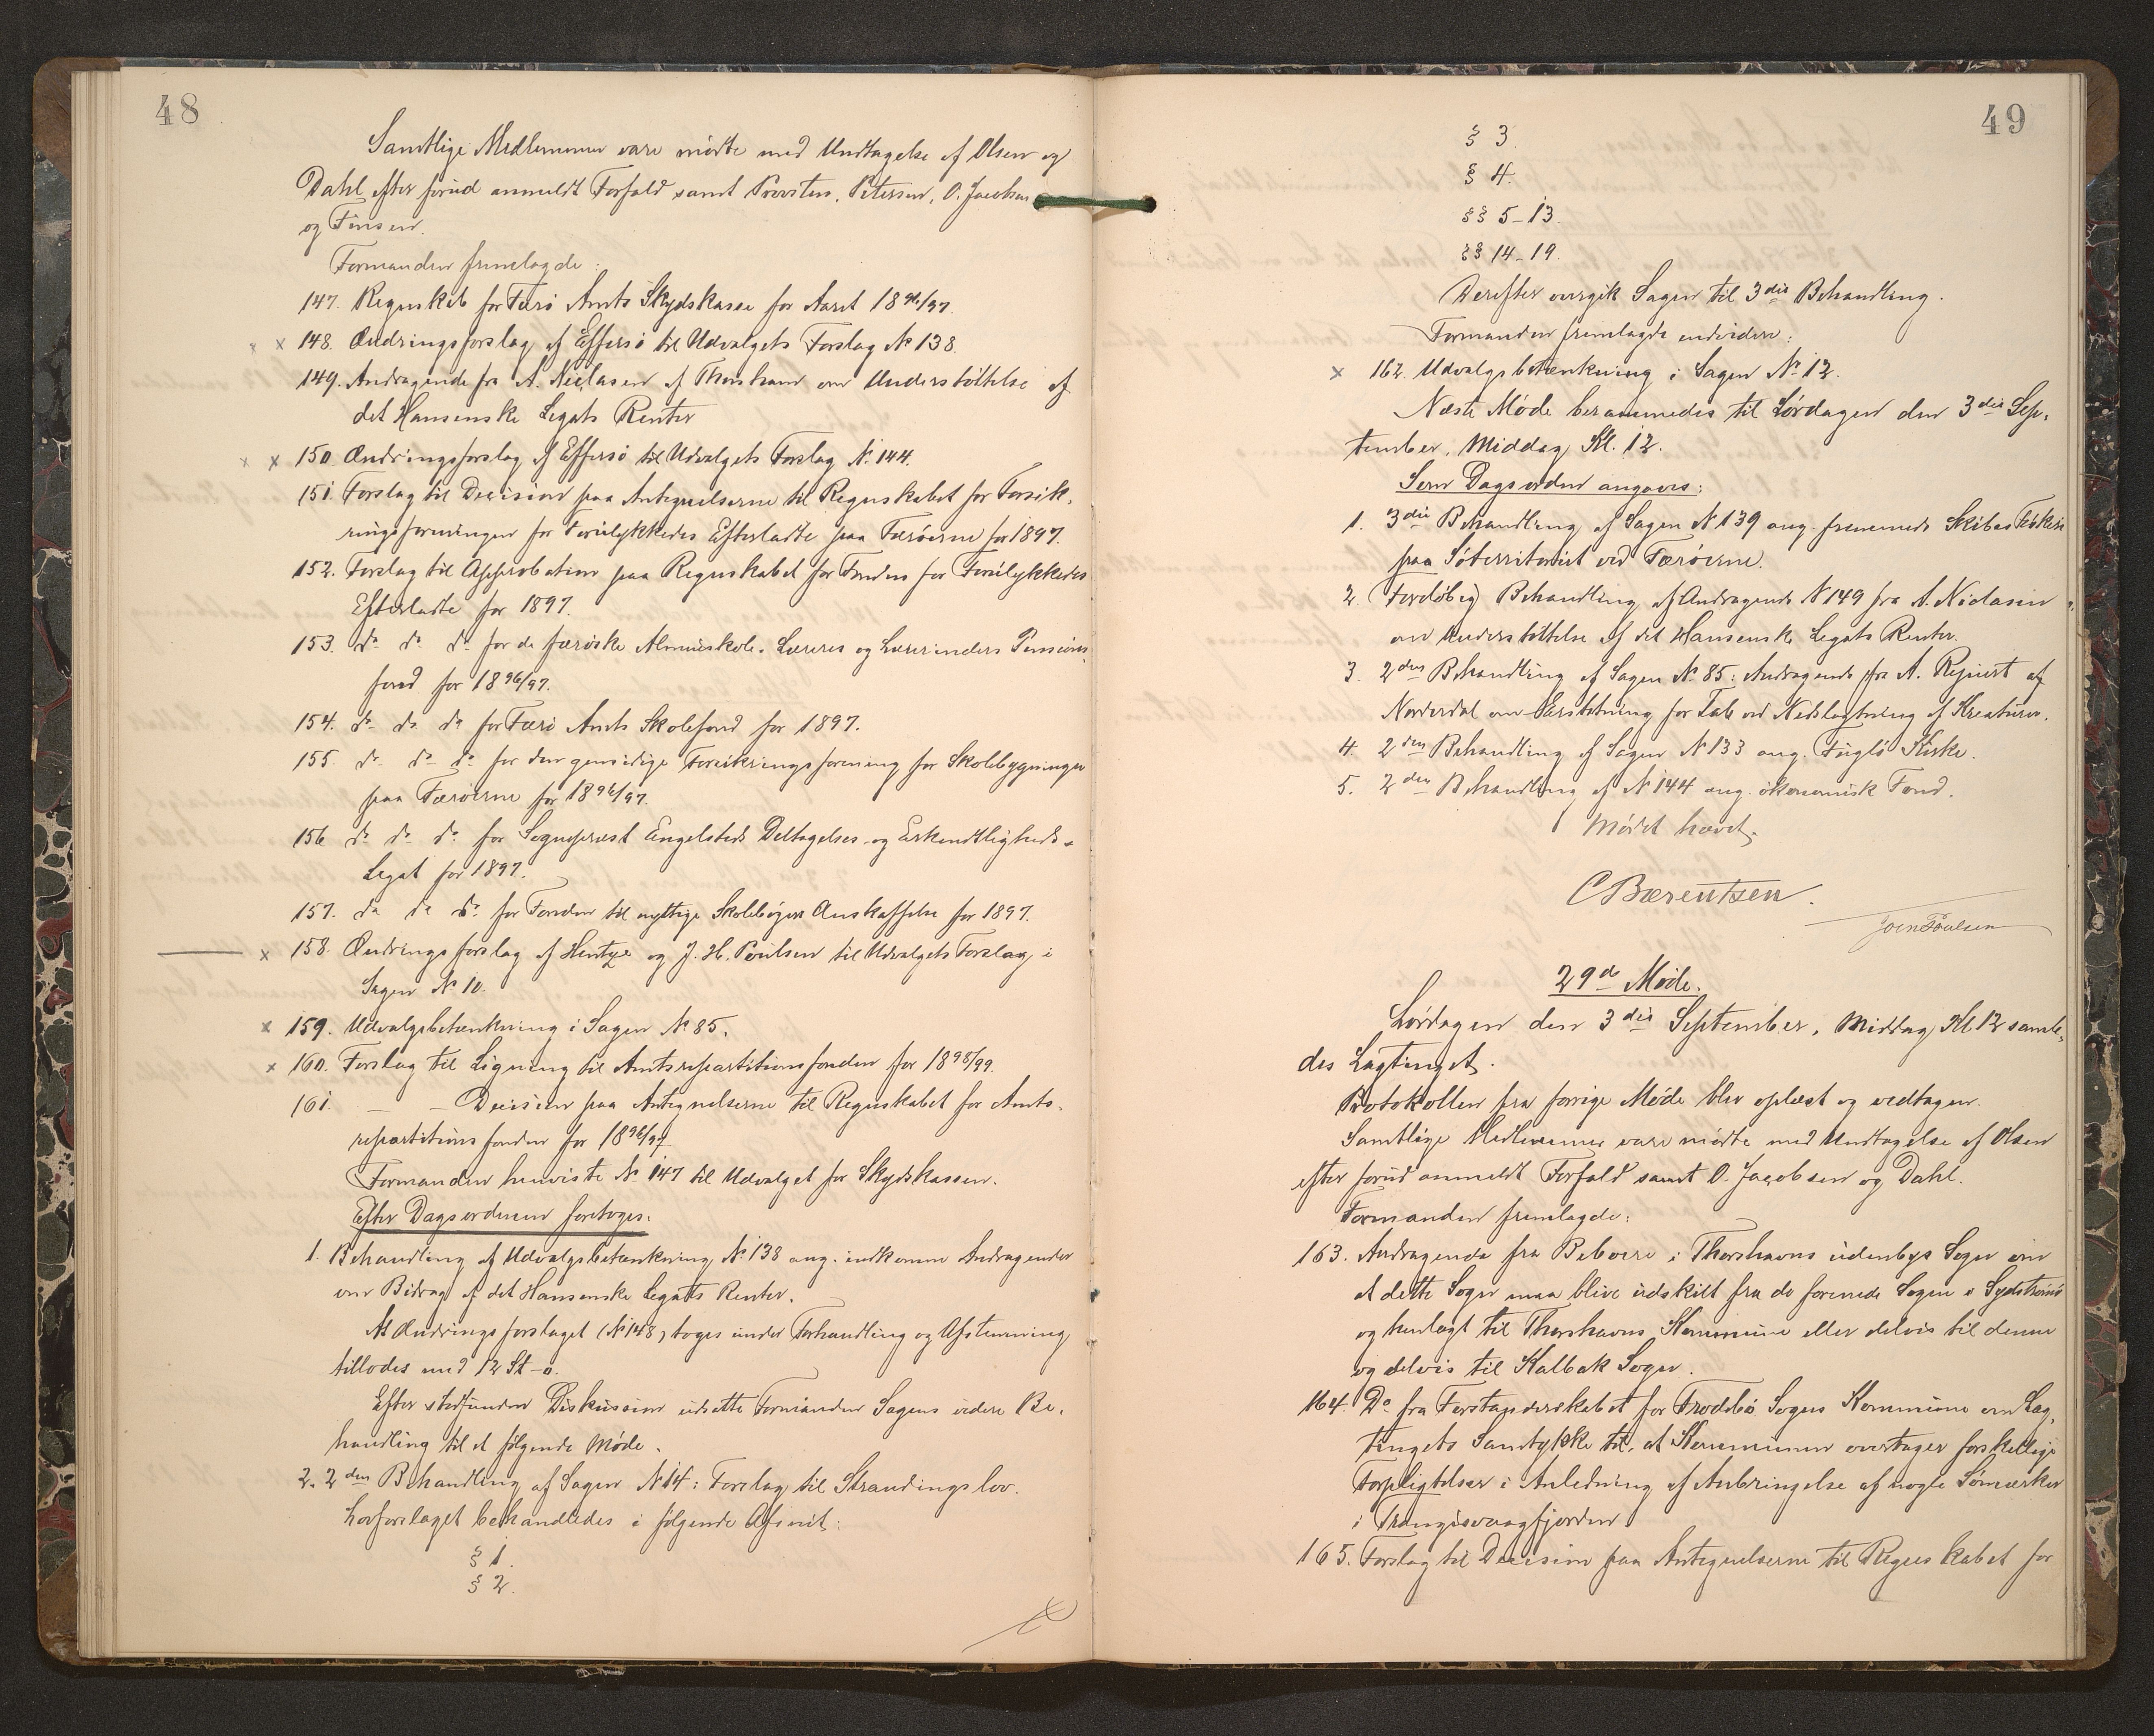 48
Samtlige Medlemmer vare mødte med Undtagelse af Olsen og
Dahl efter forud anmeldt Forfald samt Provsten, Petersen, O. Jacobsen
og Finsen.
Formanden fremlagde:
147. Regnskab for Færø Amts Skydskasse for Aaret 1896/97.
x x 148. Ændringsforslag af Effersø til Udvalgets Forslag No 138.
149. Andragende fra A. Niclasen af Thorshavn om Understøttelse af
det Hansenske Legats Renter
x x 150. Ændringsforslag af Effersø til Udvalgets Forslag No. 144.
151. Forslag til Decision paa Antegnelserne til Regnskabet for Forsik-
ringsforeningen for Forulykkedes Efterladte paa Færøerne for 1897.
152. Forslag til Approbation paa Regnskabet for Fonden for Forulykkedes
Efterladte for 1897.
153. do do do for de færøske Almueskole-Læreres og Lærerinders Pensions-
fond for 1896/97.
154. do do do for Færø Amts Skolefond for 1897.
155. do do do for den gensidige Forsikringsforening for Skolebygninger
paa Færøerne for 1896/97.
156 do do do for Sognepræst Engelsteds Deltagelses- og Erkendtligheds-
Legat for 1897.
157. do do do for Fonden til nyttige Skolebøgers Anskaffelse for 1897.
x 158. Ændringsforslag af Hentze og J. H. Poulsen til Udvalgets Forslag i
Sagen No 10.
x 159. Udvalgsbetænkning i Sagen No 85.
x 160. Forslag til Ligning til Amtsrepartitionsfonden for 1898/99.
161. — — Decision paa Antegnelserne til Regnskabet for Amts-
repartitionsfonden for 1896/97.
Formanden henviste No 147 til Udvalget for Skydskassen.
Efter Dagsordenen foretoges:
1. Behandling af Udvalgsbetænkning No 138 ang. indkomne Andragender
om Bidrag af det Hansenske Legats Renter.
At Ændringsforslaget (No 148) toges under Forhandling og Afstemning
tillodes med 12 St-0.
Efter stedfunden Diskussion udsatte Formanden Sagens videre Be-
handling til et følgende Møde.
2. 2den Behandling af Sagen No 14: Forslag til Strandingslov.
Lovforslaget behandledes i følgende Afsnit:
§ 1.
§ 2.
49
§ 3.
§ 4.
§§ 5-13.
§§ 14-19.
Derefter overgik Sagen til 3die Behandling.
Formanden fremlagde endvidere:
x 162. Udvalgsbetænkning i Sagen No 12.
Næste Møde berammedes til Lørdagen den 3die Sep-
tember, Middag Kl. 12.
Som Dagsorden angaves:
1. 3die Behandling af Sagen No 139 ang. fremmede Skibes Fiskeri
paa Søterritoriet ved Færøerne.
2. Foreløbig Behandling af Andragende No 149 fra A. Niclasen
om Understøttelse af det Hansenske Legats Renter.
3. 2den Behandling af Sagen No 85: Andragende fra A. Rejnert af
Norderdal om Erstatning for Tab ved Nedslagtning af Kreaturer.
4. 2den Behandling af Sagen No 133 ang. Fuglø Kirke.
5. 2den Behandling af No 144 ang. økonomisk Fond.
Mødet hævet.
C Bærentsen.
Joen Poulsen
29de Møde.
Lørdagen den 3die September, Middag Kl 12 samle-
des Lagtinget.
Protokollen fra forrige Møde blev oplæst og vedtagen.
Samtlige Medlemmer vare mødte med Undtagelse af Olsen
efter forud anmeldt Forfald samt O. Jacobsen og Dahl.
Formanden fremlagde:
163. Andragende fra Beboere i Thorshavns udenbys Sogn om
at dette Sogn maa blive udskilt fra de forenede Sogne i Sydstrømø
og henlagt til Thorshavns Kommune eller delvis til denne
og delvis til Kalbak Sogn.
164. Do fra Forstanderskabet for Frodebø Sogns Kommune om Lag-
tingets Samtykke til, at Kommunen overtager forskellige
Forpligtelser i Anledning af Anbringelse af nogle Sømærker
i Trangisvaagfjorden
165. Forslag til Decision paa Antegnelserne til Regnskabet for